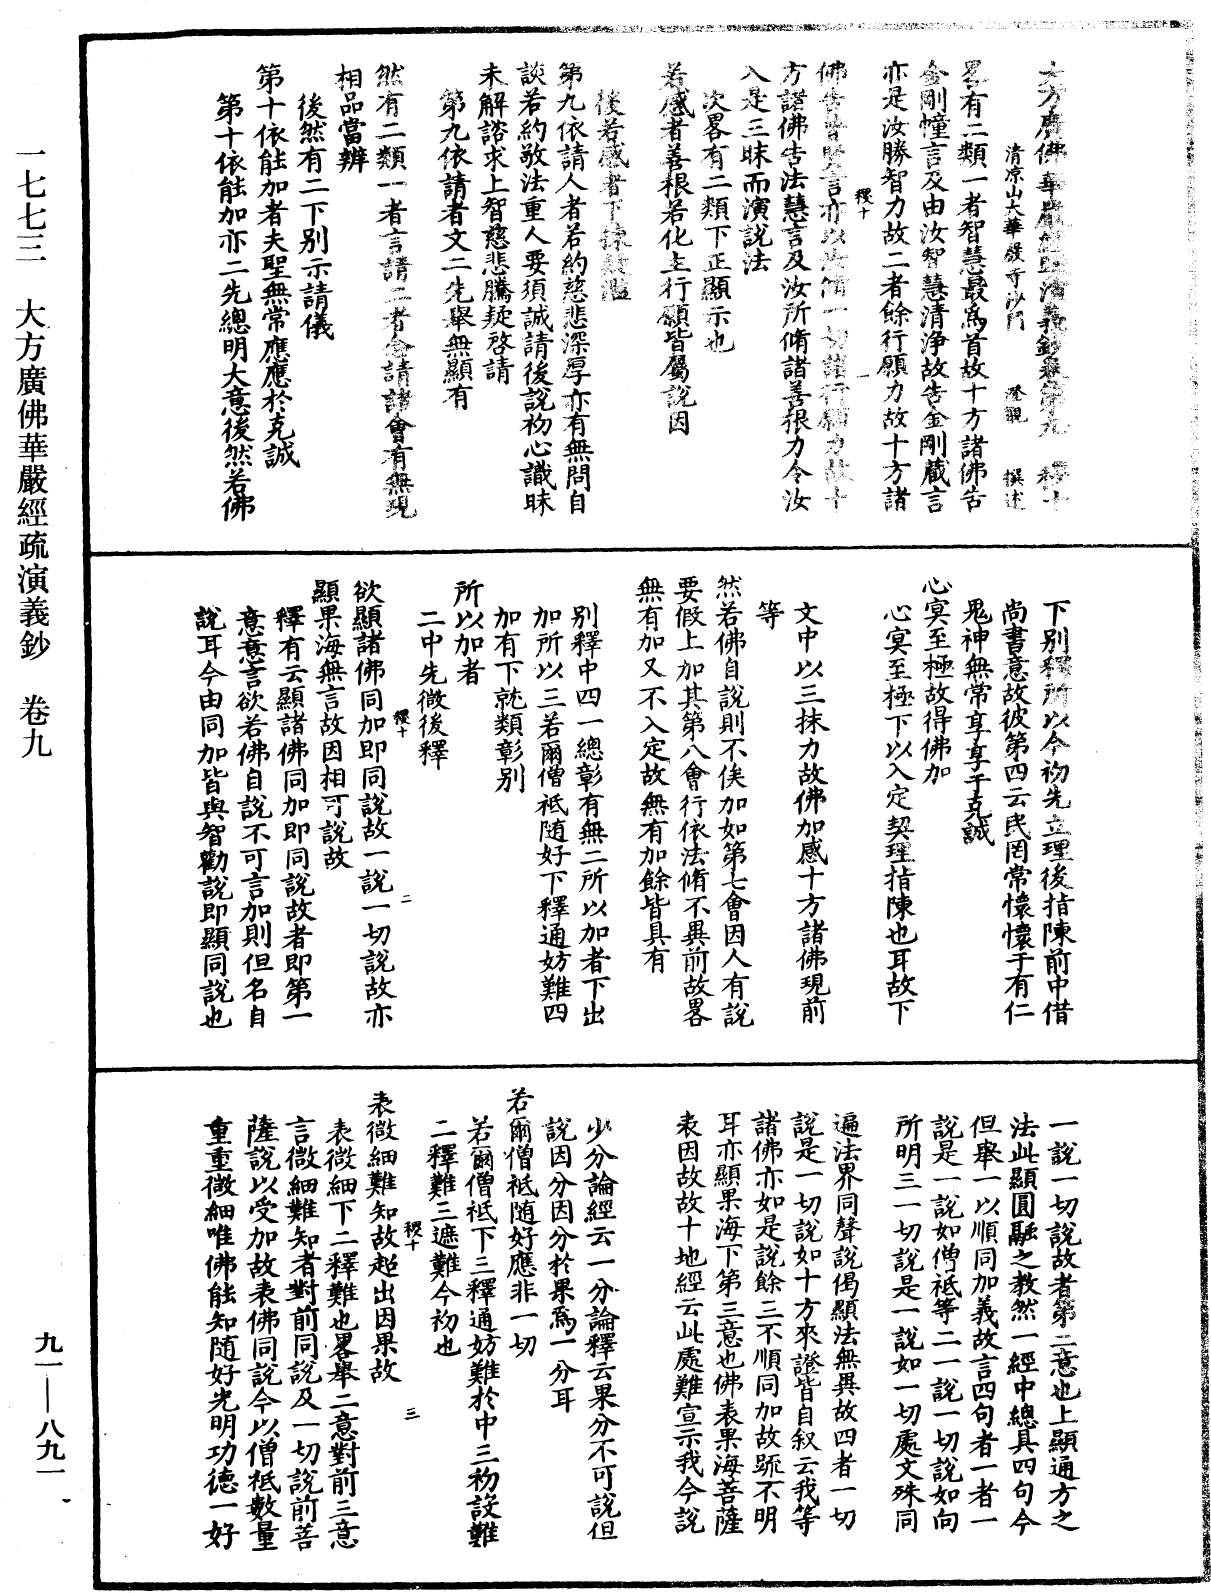 大方廣佛華嚴經疏演義鈔卷第九　稷十
清涼山大華嚴寺沙門　澄觀　撰述
畧有二類一者智慧最爲首故十方諸佛告
金剛幢言及由汝智慧清淨故告金剛藏言
亦是汝勝智力故二者餘行願力故十方諸
稷十　一
佛告普賢言亦以汝脩一切諸行願力故十
方諸佛告法慧言及汝所脩諸善根力令汝
入是三昧而演說法
次畧有二類下正顯示也
若感者善根若化主行願皆屬說因
後若感者下揀
第九依請人者若約慈悲深厚亦有無問自
談若約敬法重人要須誠請後說初心識昧
未解諮求上智慈悲騰疑啓請
第九依請者文二先舉無顯有
然有二類一者言請二者念請諸會有無現
相品當辨
後然有二下別示請儀
第十依能加者夫聖無常應應於克誠
第十依能加亦二先總明大意後然若佛
下別釋所以今初先立理後指陳前中借
尚書意故彼第四云民罔常懷懷于有仁
鬼神無常享享于克誠
心冥至極故得佛加
心冥至極下以入定契理指陳也耳故下
文中以三抹力故佛加感十方諸佛現前
等
然若佛自說則不俟加如第七會因人有說
要假上加其第八會行依法脩不異前故畧
無有加又不入定故無有加餘皆具有
別釋中四一總彰有無二所以加者下出
加所以三若爾僧祇隨好下釋通妨難四
加有下就類彰別
所以加者
二中先徵後釋
稷十　二
欲顯諸佛同加即同說故一說一切說故亦
顯果海無言故因相可說故
釋有云顯諸佛同加即同說故者即第一
意意言欲若佛自說不可言加則但名自
說耳今由同加皆與智勸說即顯同說也
一說一切說故者第二意也上顯通方之
法此顯圓融之教然一經中總具四句今
但舉一以順同加義故言四句者一者一
說是一說如僧祇等二一說一切說如向
所明三一切說是一說如一切處文殊同
遍法界同聲說偈顯法無異故四者一切
說是一切說如十方來證皆自叙云我等
諸佛亦如是說餘三不順同加故䟽不明
耳亦顯果海下第三意也佛表果海菩薩
表因故故十地經云此處難宣示我今說
少分論經云一分論釋云果分不可說但
說因分因分於果爲一分耳
若爾僧祇隨好應非一切
若爾僧祇下三釋通妨難於中三初設難
二釋難三遮難今初也
稷十　三
表微細難知故超出因果故
表微細下二釋難也畧舉二意對前三意
言微細難知者對前同說及一切說前菩
薩說以受加故表佛同說今以僧祇數量
重重微細唯佛能知隨好光明功德一好
一七七三　大方廣佛華嚴經疏演義鈔　卷九
九一—八九一